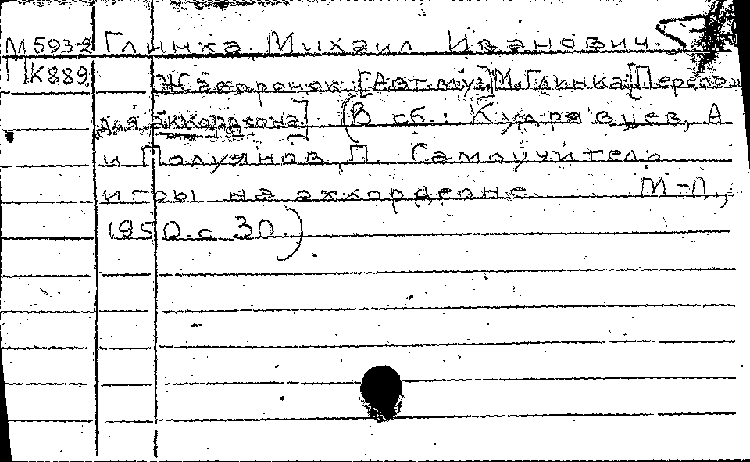 М593-2 Глинка Михаил Иванович.
К889 Жаворонок. [Авт. муз.] М. Глинка [Перелож.
для аккордеона] (В сб.: Кудрявцев, А
и Полуянов, П. Самоучитель
игры на аккордеоне. М-Л.,
1950. с 30.)